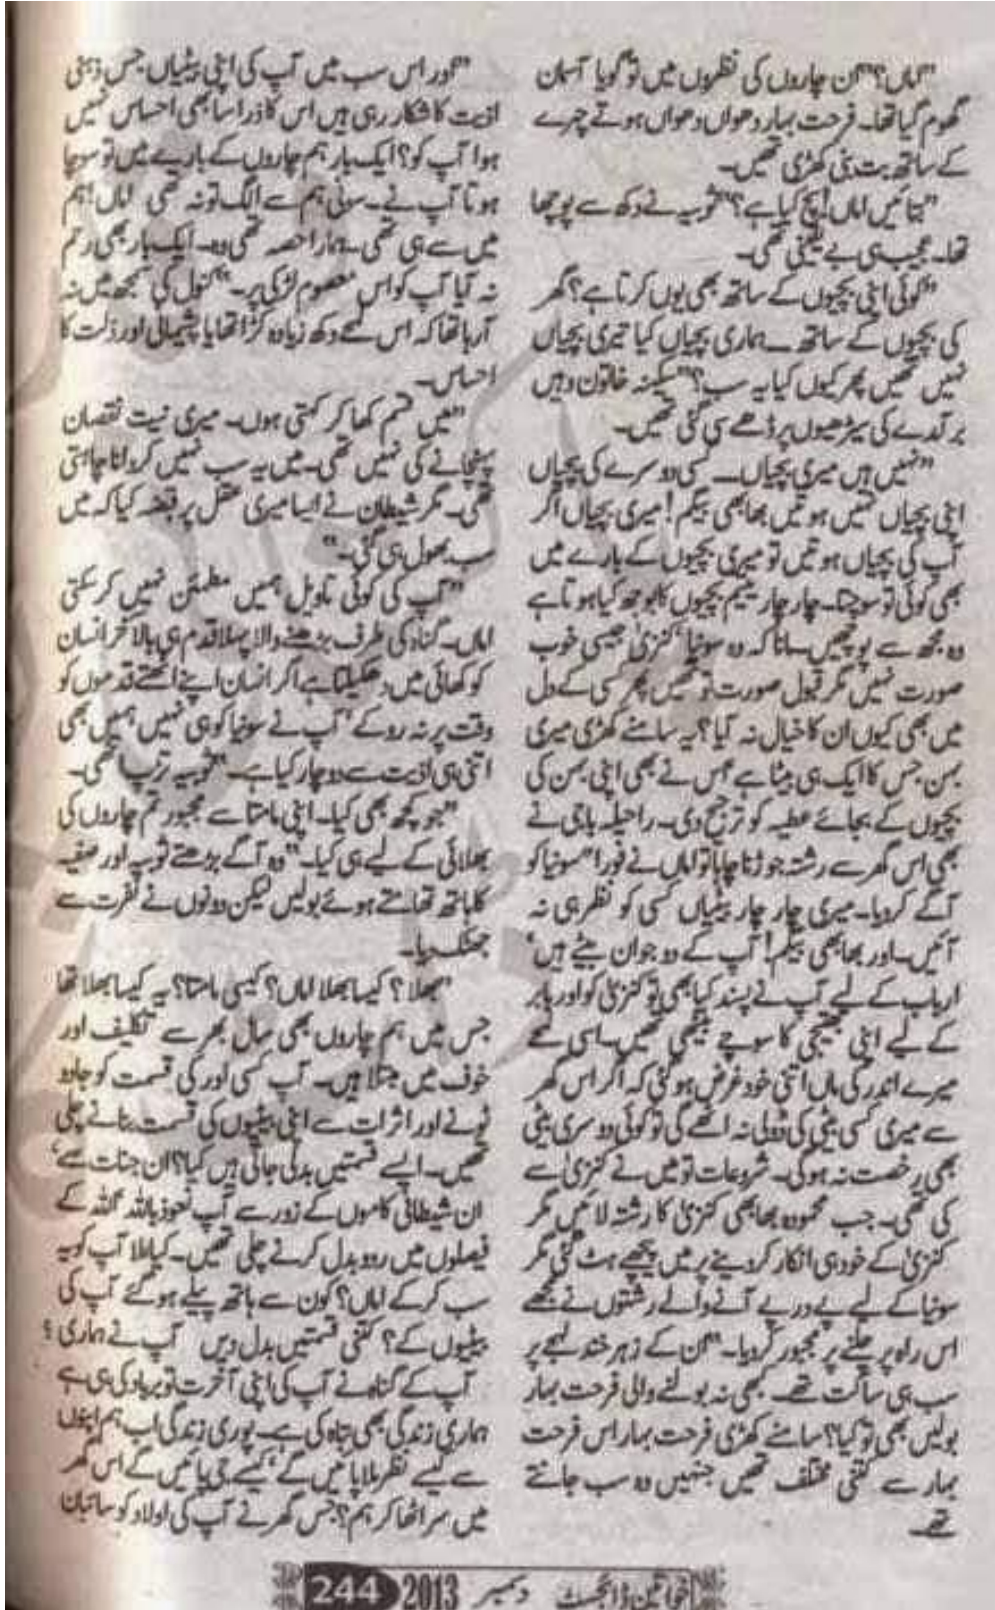 "اماں؟" ان چاروں کی نظروں میں تو گویا آسمان
گھوم گیا تھا۔ فرحت بہار دھواں دھواں ہوتے چہرے
کے ساتھ بت بنی کھڑی تھیں۔
"بتائیں اماں! سچ کیا ہے؟" ثوبیہ نے دکھ سے پوچھا
تھا۔ عجیب سی بے یقینی تھی۔
"کوئی اپنی بچیوں کے ساتھ بھی یوں کرتا ہے؟ گھر
کی بچیوں کے ساتھ۔ ہماری بچیاں کیا تیری بچیاں
نہیں تھیں پھر کیوں کیا یہ سب؟" سکینہ خاتون وہیں
برآمدے کی سیڑھیوں پر ڈھے سی گئی تھیں۔
"نہیں ہیں میری بچیاں۔ کسی دوسرے کی بچیاں
اپنی بچیاں نہیں ہوتیں بھابھی بیگم! میری بچیاں اگر
آپ کی بچیاں ہوتیں تو میری بچیوں کے بارے میں
بھی کوئی تو سوچتا۔ چار چار یتیم بچیوں کا بوجھ کیا ہوتا ہے
وہ مجھ سے پوچھیں۔ مانا کہ وہ سونیا، کنزیٰ جیسی خوب
صورت نہیں مگر قبول صورت تو تھیں پھر کسی کے دل
میں بھی کیوں ان کا خیال نہ آیا؟ یہ سامنے کھڑی میری
بہن جس کا ایک ہی بیٹا ہے اس نے بھی اپنی بہن کی
بچیوں کے بجائے عطیہ کو ترجیح دی۔ راحیلہ باجی نے
بھی اس گھر سے رشتہ جوڑنا چاہا تو اماں نے فورا" سونیا کو
آگے کردیا۔ میری چار چار بیٹیاں کسی کو نظر ہی نہ
آئیں۔ اور بھابھی بیگم! آپ کے دو جوان بیٹے ہیں،
ارباب کے لیے آپ نے پسند کیا بھی تو کنزیٰ کو اور بابر
کے لیے اپنی بھتیجی کا سوچے بیٹھی تھیں۔ اسی لمحے
میرے اندر کی ماں اتنی خود غرض ہوگئی کہ اگر اس گھر
سے میری کسی بیٹی کی ڈولی نہ اٹھے گی تو کوئی دوسری بیٹی
بھی رخصت نہ ہوگی۔ شروعات تو میں نے کنزیٰ سے
کی تھی۔ جب محمودہ بھابھی کنزیٰ کا رشتہ لائیں مگر
کنزیٰ کے خود ہی انکار کردینے پر میں پیچھے ہٹ گئی مگر
سونیا کے لیے پے در پے آنے والے رشتوں نے مجھے
اس راہ پر چلنے پر مجبور کردیا۔" ان کے زہر خند لہجے پر
سب ہی ساکت تھے۔ کبھی نہ بولنے والی فرحت بہار
بولیں بھی تو کیا؟ سامنے کھڑی فرحت بہار اس فرحت
بہار سے کتنی مختلف تھیں جنہیں وہ سب جانتے
تھے۔
"اور اس سب میں آپ کی اپنی بیٹیاں جس ذہنی
اذیت کا شکار رہی ہیں اس کا ذرا سا بھی احساس نہیں
ہوا آپ کو؟ ایک بار ہم چاروں کے بارے میں تو سوچا
ہوتا آپ نے۔ سونی ہم سے الگ تو نہ تھی اماں! ہم
میں سے ہی تھی۔ ہمارا حصہ تھی وہ۔ ایک بار بھی رحم
نہ آیا آپ کو اس معصوم لڑکی پر۔" کنول کی سمجھ میں نہ
آرہا تھا کہ اس لمحے دکھ زیادہ کڑا تھا یا پشیمانی اور ذلت کا
احساس۔
"میں قسم کھا کر کہتی ہوں۔ میری نیت نقصان
پہنچانے کی نہیں تھی۔ میں یہ سب نہیں کروانا چاہتی
تھی۔ مگر شیطان نے ایسا میری عقل پر قبضہ کیا کہ میں
سب بھول ہی گئی۔"
"آپ کی کوئی تاویل ہمیں مطمئن نہیں کرسکتی
اماں۔ گناہ کی طرف بڑھنے والا پہلا قدم ہی بالآخر انسان
کو کھائی میں دھکیلتا ہے اگر انسان اپنے اٹھتے قدموں کو
وقت پر نہ روکے، آپ نے سونیا کو ہی نہیں ہمیں بھی
اتنی ہی اذیت سے دوچار کیا ہے۔" ثوبیہ تڑپ اٹھی۔
"جو کچھ بھی کیا۔ اپنی مامتا سے مجبور تم چاروں کی
بھلائی کے لیے ہی کیا۔" وہ آگے بڑھتے ثوبیہ اور صفیہ
کا ہاتھ تھامتے ہوئے بولیں لیکن دونوں نے نفرت سے
جھٹک دیا۔
"بھلا؟ کیسا بھلا اماں؟ کیسی مامتا؟ یہ کیسا بھلا تھا
جس میں ہم چاروں بھی سال بھر سے تکلیف اور
خوف میں مبتلا ہیں۔ آپ کسی اور کی قسمت کو جادو
ٹونے اور اثرات سے اپنی بیٹیوں کی قسمت بنانے چلی
تھیں۔ ایسے قسمتیں بدلی جاتی ہیں کیا؟ ان جنات سے،
ان شیطانی کاموں کے زور سے آپ نعوذ باللہ اللہ کے
فیصلوں میں ردوبدل کرنے چلی تھیں۔ کیا ملا آپ کو یہ
سب کرکے اماں؟ کون سے ہاتھ پیلے ہوگئے آپ کی
بیٹیوں کے؟ کتنی قسمتیں بدل دیں آپ نے ہماری؟
آپ کے گناہ نے آپ کی اپنی آخرت تو برباد کی ہی ہے
ہماری زندگی بھی تباہ کی ہے۔ پوری زندگی اب ہم اپنوں
سے کیسے نظر ملا پائیں گے، کیسے جی پائیں گے اس گھر
میں سر اٹھا کر ہم؟ جس گھر نے آپ کی اولاد کو سائبان
خواتین ڈائجسٹ دسمبر 2013 244